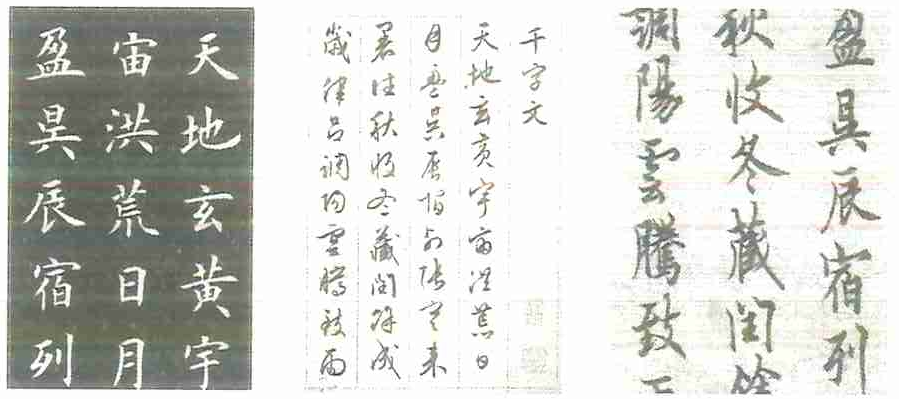 天地玄黄宇
宙洪荒日月
盈昃辰宿列
千字文
天地玄黄宇宙洪荒日
月盈昃辰宿列張寒来
暑往秋收冬藏閏餘成
歲律吕調陽雲騰致雨
盈昃辰宿列
秋收冬藏閏餘
調陽雲騰致